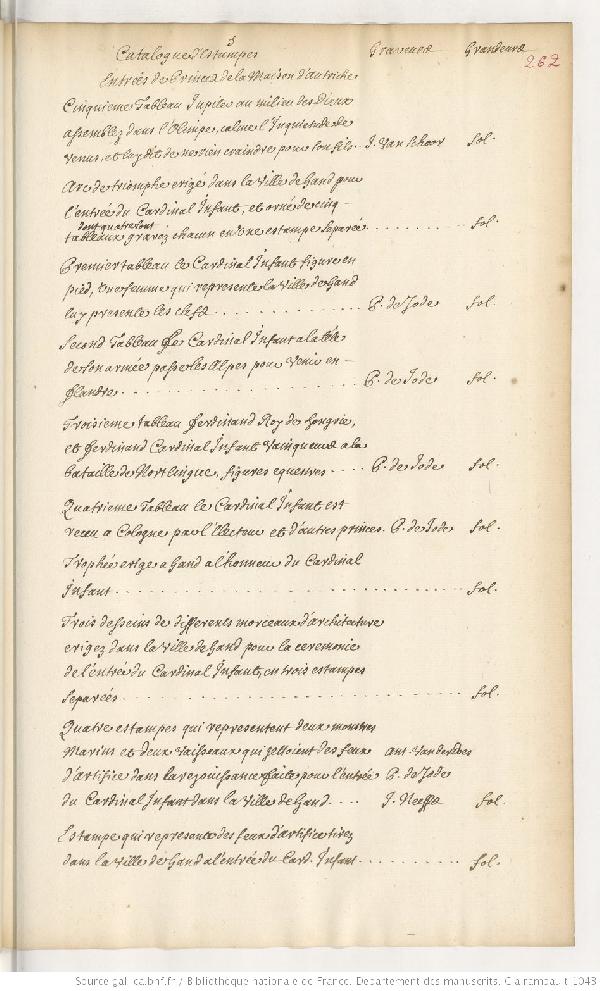 5
Catalogue d'Estampes Graveurs Grandeurs
262
Entrées de Princes de la Maison d'autriche
Cinquieme Tableau Jupiter au milieu des Dieux
assemblez dans l'Olimpe, calme l'Inquietude de
Venus, et luy dit de ne rien craindre pour son fils.. J. Van Schoor fol.
Arc de triomphe erigé dans la Ville de Gand pour
l'entrée du Cardinal Infant, et orné de cinq
dont quatre sont
tableaux gravéz chacun en une estampe separée. fol.
Premier tableau le Cardinal Infant figure en
pied, une femme qui represente la Ville de Gand
luy presente les clefs P. de Jode fol.
Second Tableau Le Cardinal Infant a la teste
de son armée passe les Alpes pour Venir en
flandre P. de Jode fol.
Troisieme tableau Ferdinand Roy de hongrie,
et Ferdinand Cardinal Infant Vainqueurs a la
bataille de Nortlingue, figures equestres P. de Jode fol.
Quatrieme Tableau le Cardinal Infant est
receu a Cologne par l'Electeur et d'autres princes. P. de Jode fol.
Trophée erigé a Gand a l'honneur du Cardinal
Infant fol.
Trois desseins de differents morceaux d'architecture
erigez dans la Ville de Gand pour la ceremonie
de l'entrée du Cardinal Infant, en trois estampes
separées fol.
Quatre estampes qui representent deux monstres
Marins et deux Vaisseaux qui jettoient des feux Ant. Vander Does
d'artifice dans la rejouissance faite pour l'entrée P. de Jode
du Cardinal Infant dans la Ville de Gand.... J. Neeffs fol.
Estampe qui represente des feux d'artifice tirez
dans la Ville de Gand a l'entrée du Card. Infant fol.
Source gallica.bnf.fr / Bibliothèque nationale de France. Département des manuscrits. Clairambault 1043